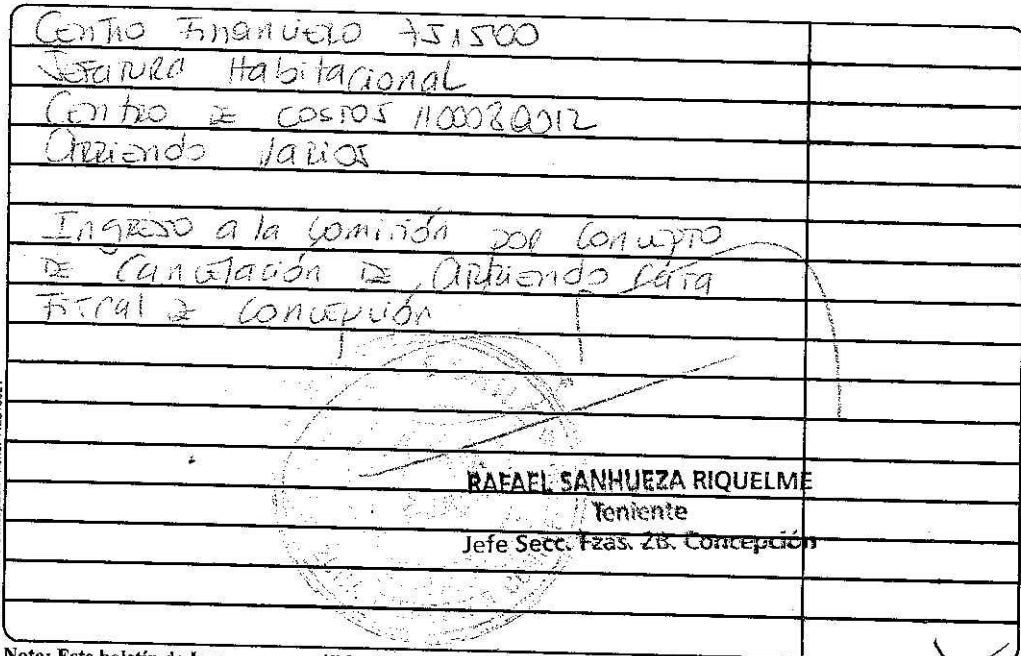 Centro Financiero 751500
Jefatura Habitacional
Centro de costos
Arriendo Varios
Ingreso a la Comisión por Concepto
de Cancelación de Arriendo Casa
Fiscal de Concepción
RAFAEL SANHUEZA RIQUELME
Teniente
Jefe Secc. Fzas. ZB. Concepción
Nota: Este boletín de